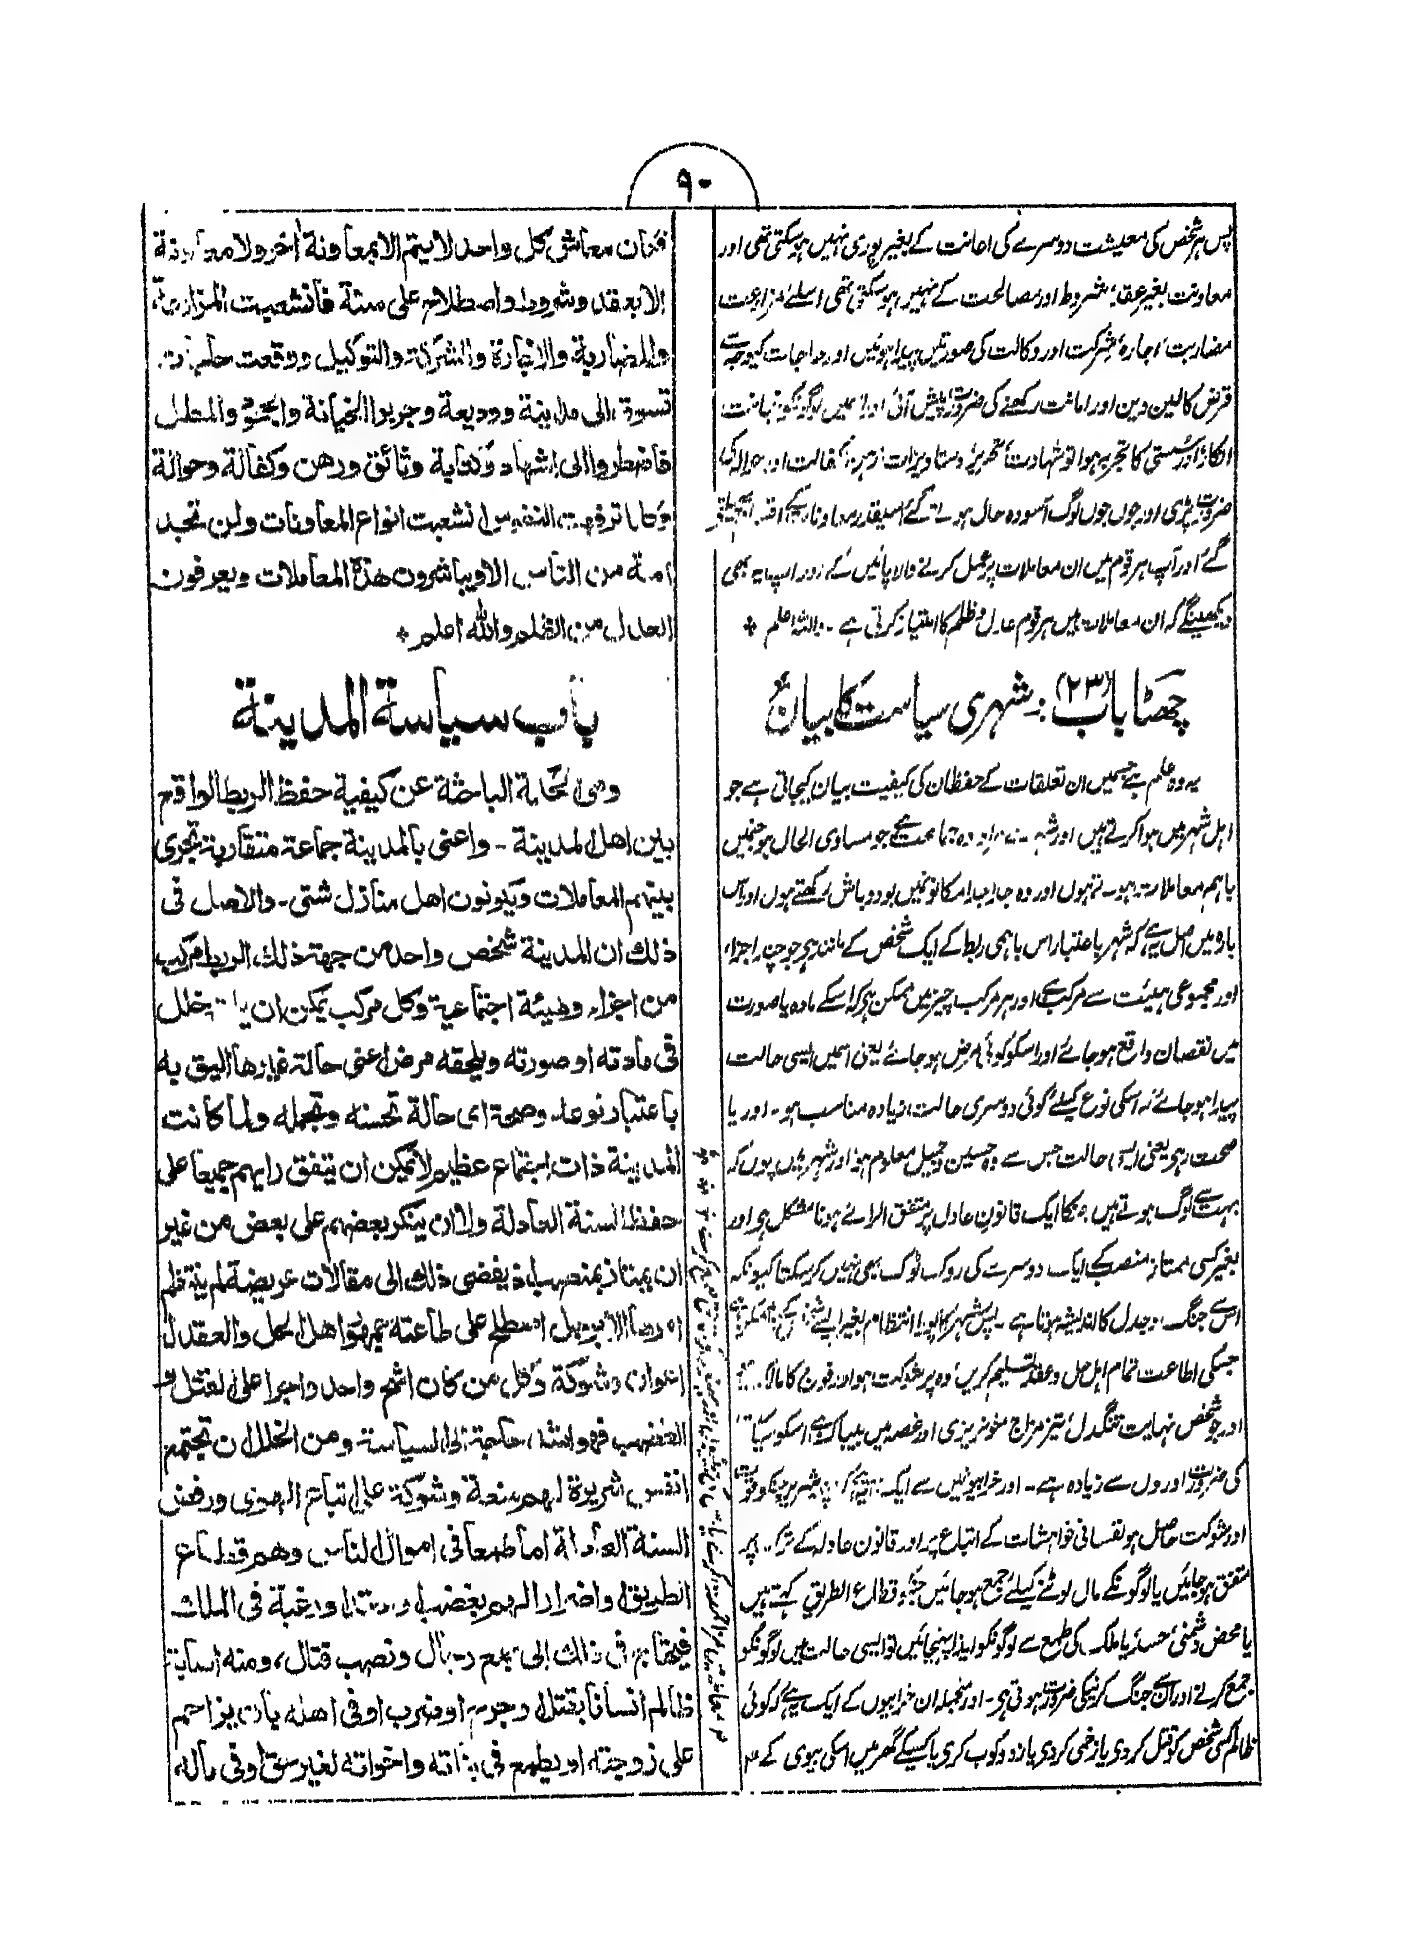 ۹۰
پس ہر شخص کی معیشت دوسرے کی اعانت کے بغیر پوری نہیں ہو سکتی تھی اور
معاونت بغیر عقد، شروط اور مصالحت کے نہیں ہو سکتی تھی اسلئے مزارعت
مضاربت، اجارہ، شرکت اور وکالت کی صورتیں پیدا ہوئیں اور حاجات کیوجہ سے
قرض کا لین دین اور امانت رکھنے کی ضرورت پیش آئی اور اسمیں لوگونکو خیانت،
انکار اور سستی کا تجربہ ہوا تو شہادت، تحریر دستاویزات، رہن، کفالت اور حوالہ کی
ضرورت پڑی اور جوں جوں لوگ آسودہ حال ہوتے گئے اسیقدر معاونات کے
گئے اور آپ ہر قوم میں ان معاملات پر عمل کرنے والا پائیں گے، اور آپ یہ بھی
دیکھینگے کہ ان معاملات میں ہر قوم عدل و ظلم کا امتیاز کرتی ہے ۔ واللہ اعلم ٭
چھٹا باب (۲۳):۔ شہری سیاست کا بیان
یہ وہ علم ہے جسمیں ان تعلقات کے حفظان کی کیفیت بیان کیجاتی ہے جو
اہل شہر میں ہوا کرتے ہیں اور شہر سے مراد وہ جماعت ہے جو مساوی الحال ہو جنمیں
باہم معاملات ہوتے ہوں اور وہ جدا جدا مکانونمیں بود و باش رکھتے ہوں اور اس
بارہ میں اصل یہ ہے کہ شہر باعتبار اس باہمی ربط کے ایک شخص کے مانند ہے جو چند اجزاء
اور مجموعی ہیئت سے مرکب ہے اور ہر مرکب چیز میں ممکن ہے کہ اسکے مادہ یا صورت
میں نقصان واقع ہو جائے اور اسکو کوئی مرض ہو جائے یعنی اسمیں ایسی حالت
پیدا ہو جائے کہ اسکی نوع کیلئے کوئی دوسری حالت زیادہ مناسب ہو ۔ اور یا
صحت ہو یعنی ایسی حالت جس سے وہ حسین و جمیل معلوم ہو اور شہر میں چوں کہ
بہت سے لوگ ہوتے ہیں جنکا ایک قانون عادل پر متفق الرائے ہونا مشکل ہے اور
بغیر کسی ممتاز منصب کے ایک دوسرے کی روک ٹوک بھی نہیں کر سکتا کیونکہ
اس سے جنگ و جدل کا اندیشہ ہوتا ہے ۔ پس شہر کا پورا انتظام بغیر ایسے شخص کے
جسکی اطاعت تمام اہل حل و عقد تسلیم کریں، وہ پر شوکت ہو اور فوج کا مالک
اور جو شخص نہایت تنگدل، تیز مزاج خونریزی اور غصہ میں بیباک ہے، اسکو سیاست
کی ضرورت اوروں سے زیادہ ہے ۔ اور خرابیونمیں سے ایک یہ ہے کہ چند شریر جنکو قوت
اور شوکت حاصل ہو نفسانی خواہشات کے اتباع پر اور قانون عادلہ کے ترک پر
متفق ہو جائیں یا لوگونکے مال لوٹنے کیلئے جمع ہو جائیں جنکو قطاع الطریق کہتے ہیں
یا محض دشمنی، حسد یا ملک کی طمع سے لوگونکو ایذا پہنچائیں تو ایسی حالت میں لوگونکو
جمع کرنے اور ان سے جنگ کرنیکی ضرورت ہوتی ہے ۔ اور منجملہ ان خرابیوں کے ایک یہ ہے کہ کوئی
ظالم کسی شخص کو قتل کر دے یا زخمی کر دے یا زد و کوب کرے یا کسیکے گھر میں اسکی بیوی کے
فكان معاش كل واحد لا يتم الا بمعاونة اٰخر ولا معاونة
الا بعقد وشروط واصطلاح على سنة فانشعبت المزارعة
والمضاربة والاجارة والشركة والتوكيل ووقعت حاجات
تسوق الى مداينة ووديعة وجربوا الخيانة والجحود والمطل
فاضطروا الى اشهاد وكتابة وثائق ورهن وكفالة وحوالة
وكلما ترفهت النفوس انشعبت انواع المعاونات ولن تجد
امة من الناس الا ويباشرون هذه المعاملات ويعرفون
العدل من الظلم والله اعلم ٭
باب سياسة المدينة
وهى الحكمة الباحثة عن كيفية حفظ الربط الواقع
بين اهل المدينة ۔ واعنى بالمدينة جماعة متقاربة تجرى
بينهم المعاملات ويكونون اهل منازل شتى ۔ والاصل فى
ذلك ان المدينة شخص واحد من جهة ذلك الربط مركب
من اجزاء وهيئة اجتماعية وكل مركب يمكن ان يلحقه خلل
فى مادته او صورته ويلحقه مرض اعنى حالة غيرها اليق به
باعتبار نوعه وصحة اى حالة تحسنه وتجمله ولما كانت
المدينة ذات اجتماع عظيم لا يمكن ان يتفق رايهم جميعا على
حفظ السنة العادلة ولا ان ينكر بعضهم على بعض من غير
ان يمتاز بمنصب اذ يفضى ذلك الى مقاتلات عريضة لم ينتظم
امرها الا برجل اصطلح على طاعته جمهور اهل الحل والعقد له
اعوان وشوكة وكل من كان اشح واحد واجرأ على القتل و
الغضب فهو اشد حاجة الى السياسة ومن الخلل ان تجتمع
انفس شريرة لهم منعة وشوكة على اتباع الهوى ورفض
السنة العادلة اما طمعا فى اموال الناس وهم قطاع
الطريق او اضرارا لهم بغضب او رغبة فى الملك
فيحتاج فى ذلك الى جمع رجال ونصب قتال، ومنه اصابة
ظالم انسانا بقتل او جرح او ضرب او فى اهله بان يزاحم
على زوجته او يطمع فى بناته واخواته لغير حق او فى ماله